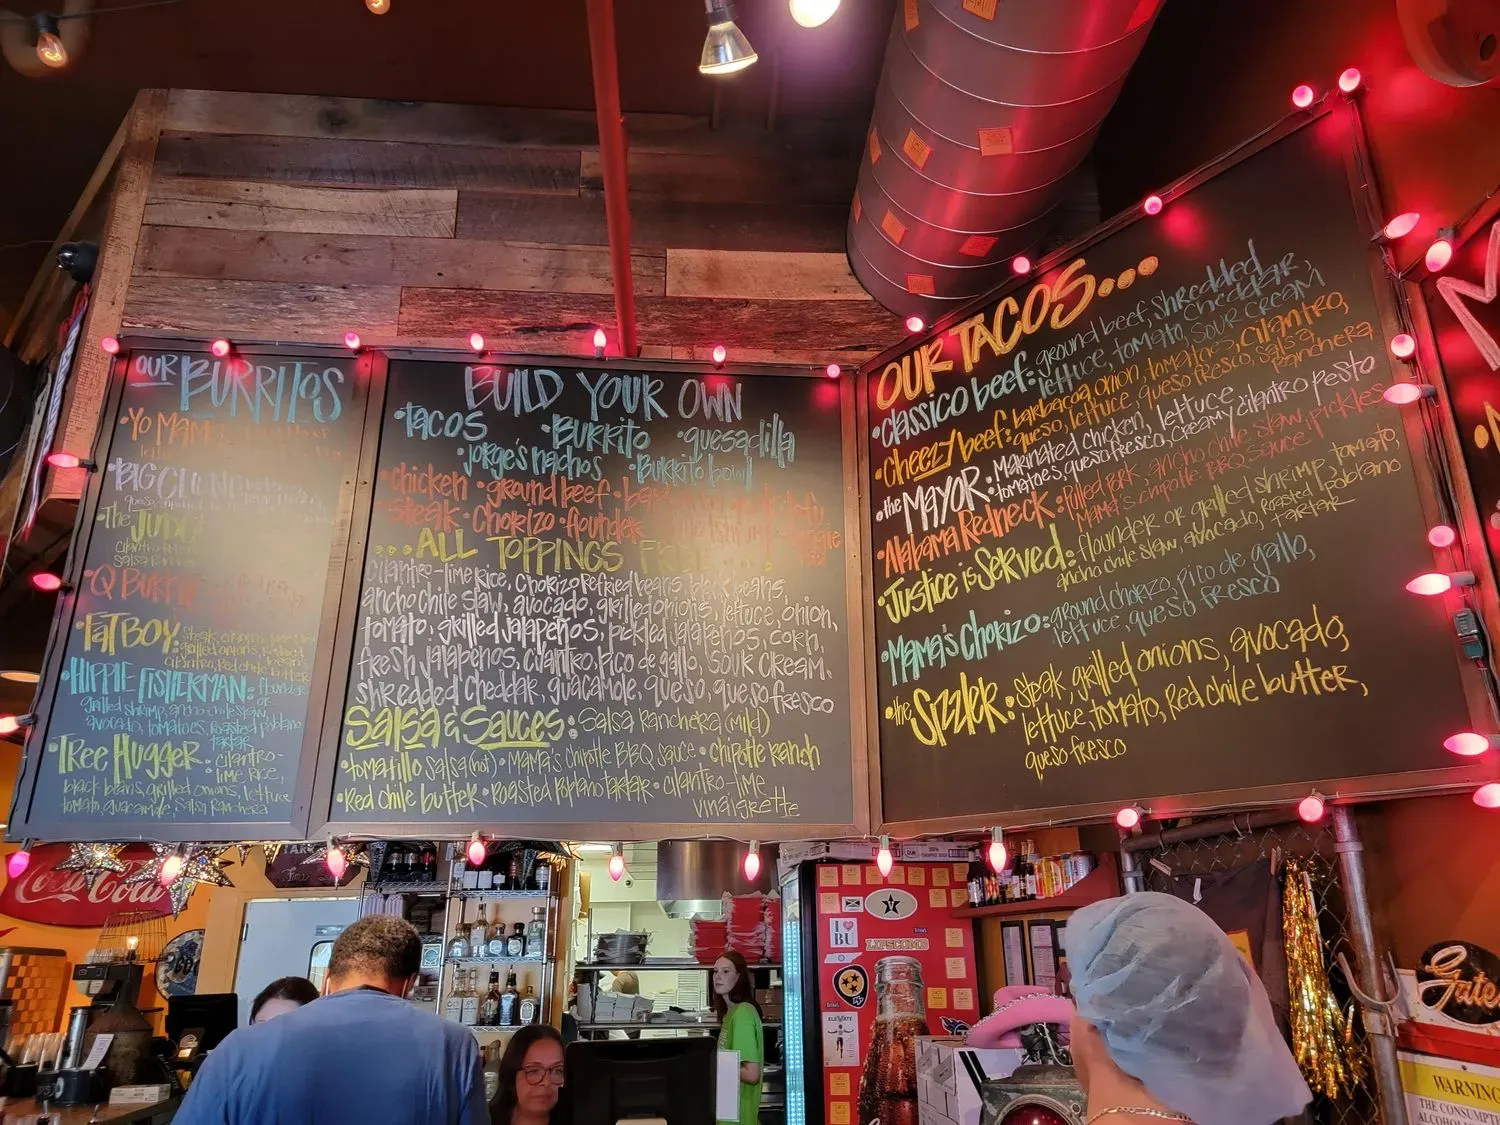 OUR BURRITOS
• YO MAMA
• BIG CHEESE
queso, shredded
• The JUDGE
cilantro-lime
salsa ranchera
• Q BURRITO
• FATBOY: steak,
grilled onions,
cilantro, Red chile butter
• HIPPIE FISHERMAN: flounder or
grilled shrimp, ancho chile slaw
avocado, tomatoes, roasted poblano
tartar
• TREE HUGGER: cilantro-
lime rice,
black beans, grilled onions, lettuce
tomato, guacamole, salsa ranchera
BUILD YOUR OWN
• Tacos • Burrito • quesadilla
• Jorge's nachos • Burrito bowl
• chicken • ground beef •
• steak • Chorizo • flounder
...ALL TOPPINGS FREE...
cilantro-lime rice, chorizo refried beans, black beans,
ancho chile slaw, avocado, grilled onions, lettuce, onion,
tomato, grilled jalapeños, pickled jalapeños, corn,
fresh jalapeños, cilantro, pico de gallo, sour cream,
shredded cheddar, guacamole, queso, queso fresco
Salsa & Sauces: Salsa Ranchera (mild)
• tomatillo salsa (hot) • Mama's chipotle BBQ sauce • chipotle ranch
• Red chile butter • roasted poblano tartar • cilantro-lime
vinaigrette
OUR TACOS...
• Classico beef: ground beef, shredded
lettuce, tomato, cheddar,
sour cream
• Cheezy beef: barbacoa, onion, tomatoes, cilantro,
queso, lettuce, queso fresco, salsa
ranchera
• the MAYOR: Marinated chicken, lettuce
tomatoes, queso fresco, creamy cilantro pesto
• Alabama Redneck: pulled pork, ancho chile slaw, pickles
Mama's chipotle BBQ sauce
• Justice is Served: flounder or grilled shrimp, tomato,
ancho chile slaw, avocado, roasted poblano
tartar
• Mama's Chorizo: ground chorizo, pico de gallo,
lettuce, queso fresco
• the Sizzler: steak, grilled onions, avocado,
lettuce, tomato, red chile butter,
queso fresco
Coca-Cola
I BU
LIPSCOMB
ELEVATE
WARNING
THE CONSUMPT
ALCOHOL